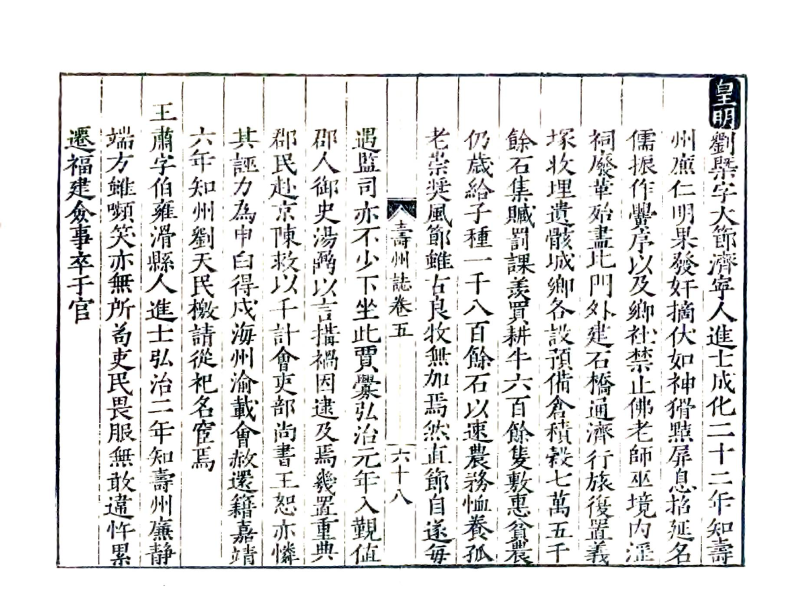 皇明
劉槩字大節濟寧人進士成化二十二年知壽
州廉仁明果發奸摘伏如神猾黠屏息招延名
儒振作黌序以及鄉社禁止佛老師巫境内淫
祠廢革始盡北門外建石橋通濟行旅復置義
塚收埋遺骸城鄉各設預備倉積穀七萬五千
餘石集贓罰課羨買耕牛六百餘隻敷惠貧農
仍歲給子種一千八百餘石以速農務恤養孤
老崇奬風節雖古良牧無加焉然直節自遂每
壽州誌卷五 六十八
遇監司亦不少下坐此賈釁弘治元年入覲值
郡人御史湯鼐以言搆禍因逮及焉幾置重典
郡民赴京陳救以千計會吏部尚書王恕亦憐
其誣力為申白得戍海州渝載會赦還籍嘉靖
六年知州劉天民檄請從祀名宦焉
王肅字伯雍滑縣人進士弘治二年知壽州廉静
端方雖嚬笑亦無所苟吏民畏服無敢違忤累
遷福建僉事卒于官